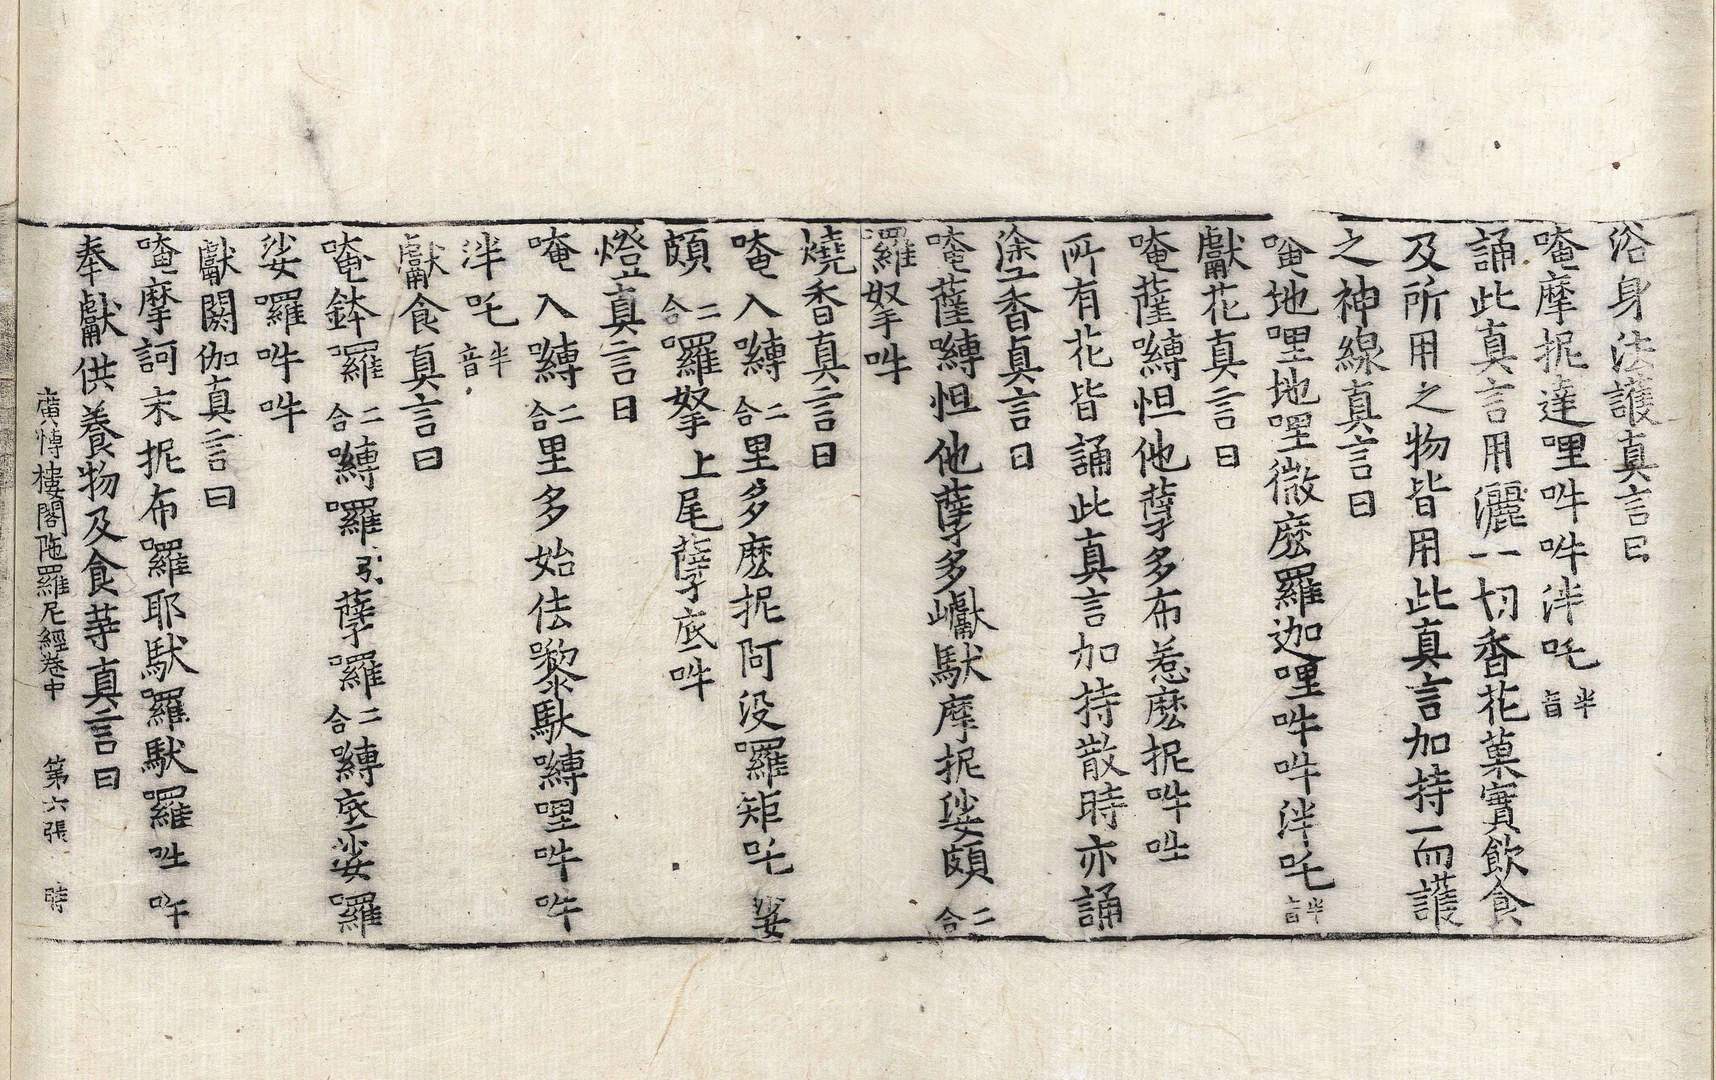 浴身法護真言曰
唵摩抳達哩吽吽泮吒半音
誦此真言用灑一切香花菓實飲食
及所用之物皆用此真言加持而護
之神線真言曰
唵地哩地哩微麽羅迦哩吽吽泮吒半音
獻花真言曰
唵薩嚩怛他孽多布惹麽抳吽吽
所有花皆誦此真言加持散時亦誦
塗香真言曰
唵薩嚩怛他孽多巘馱摩抳娑頗二合
囉拏吽
燒香真言曰
唵入嚩二合里多麽抳阿没囉矩吒娑
頗二合囉拏上尾孽底吽
燈真言曰
唵入嚩二合里多始佉黎馱嚩哩吽吽
泮吒半音
獻食真言曰
唵鉢囉二合嚩囉引孽囉二合嚩底娑囉
娑囉吽吽
獻閼伽真言曰
唵摩訶末抳布囉耶馱囉馱囉吽吽
奉獻供養物及食䓁真言曰
廣愽樓閣陁羅尼經卷中 第六張 時